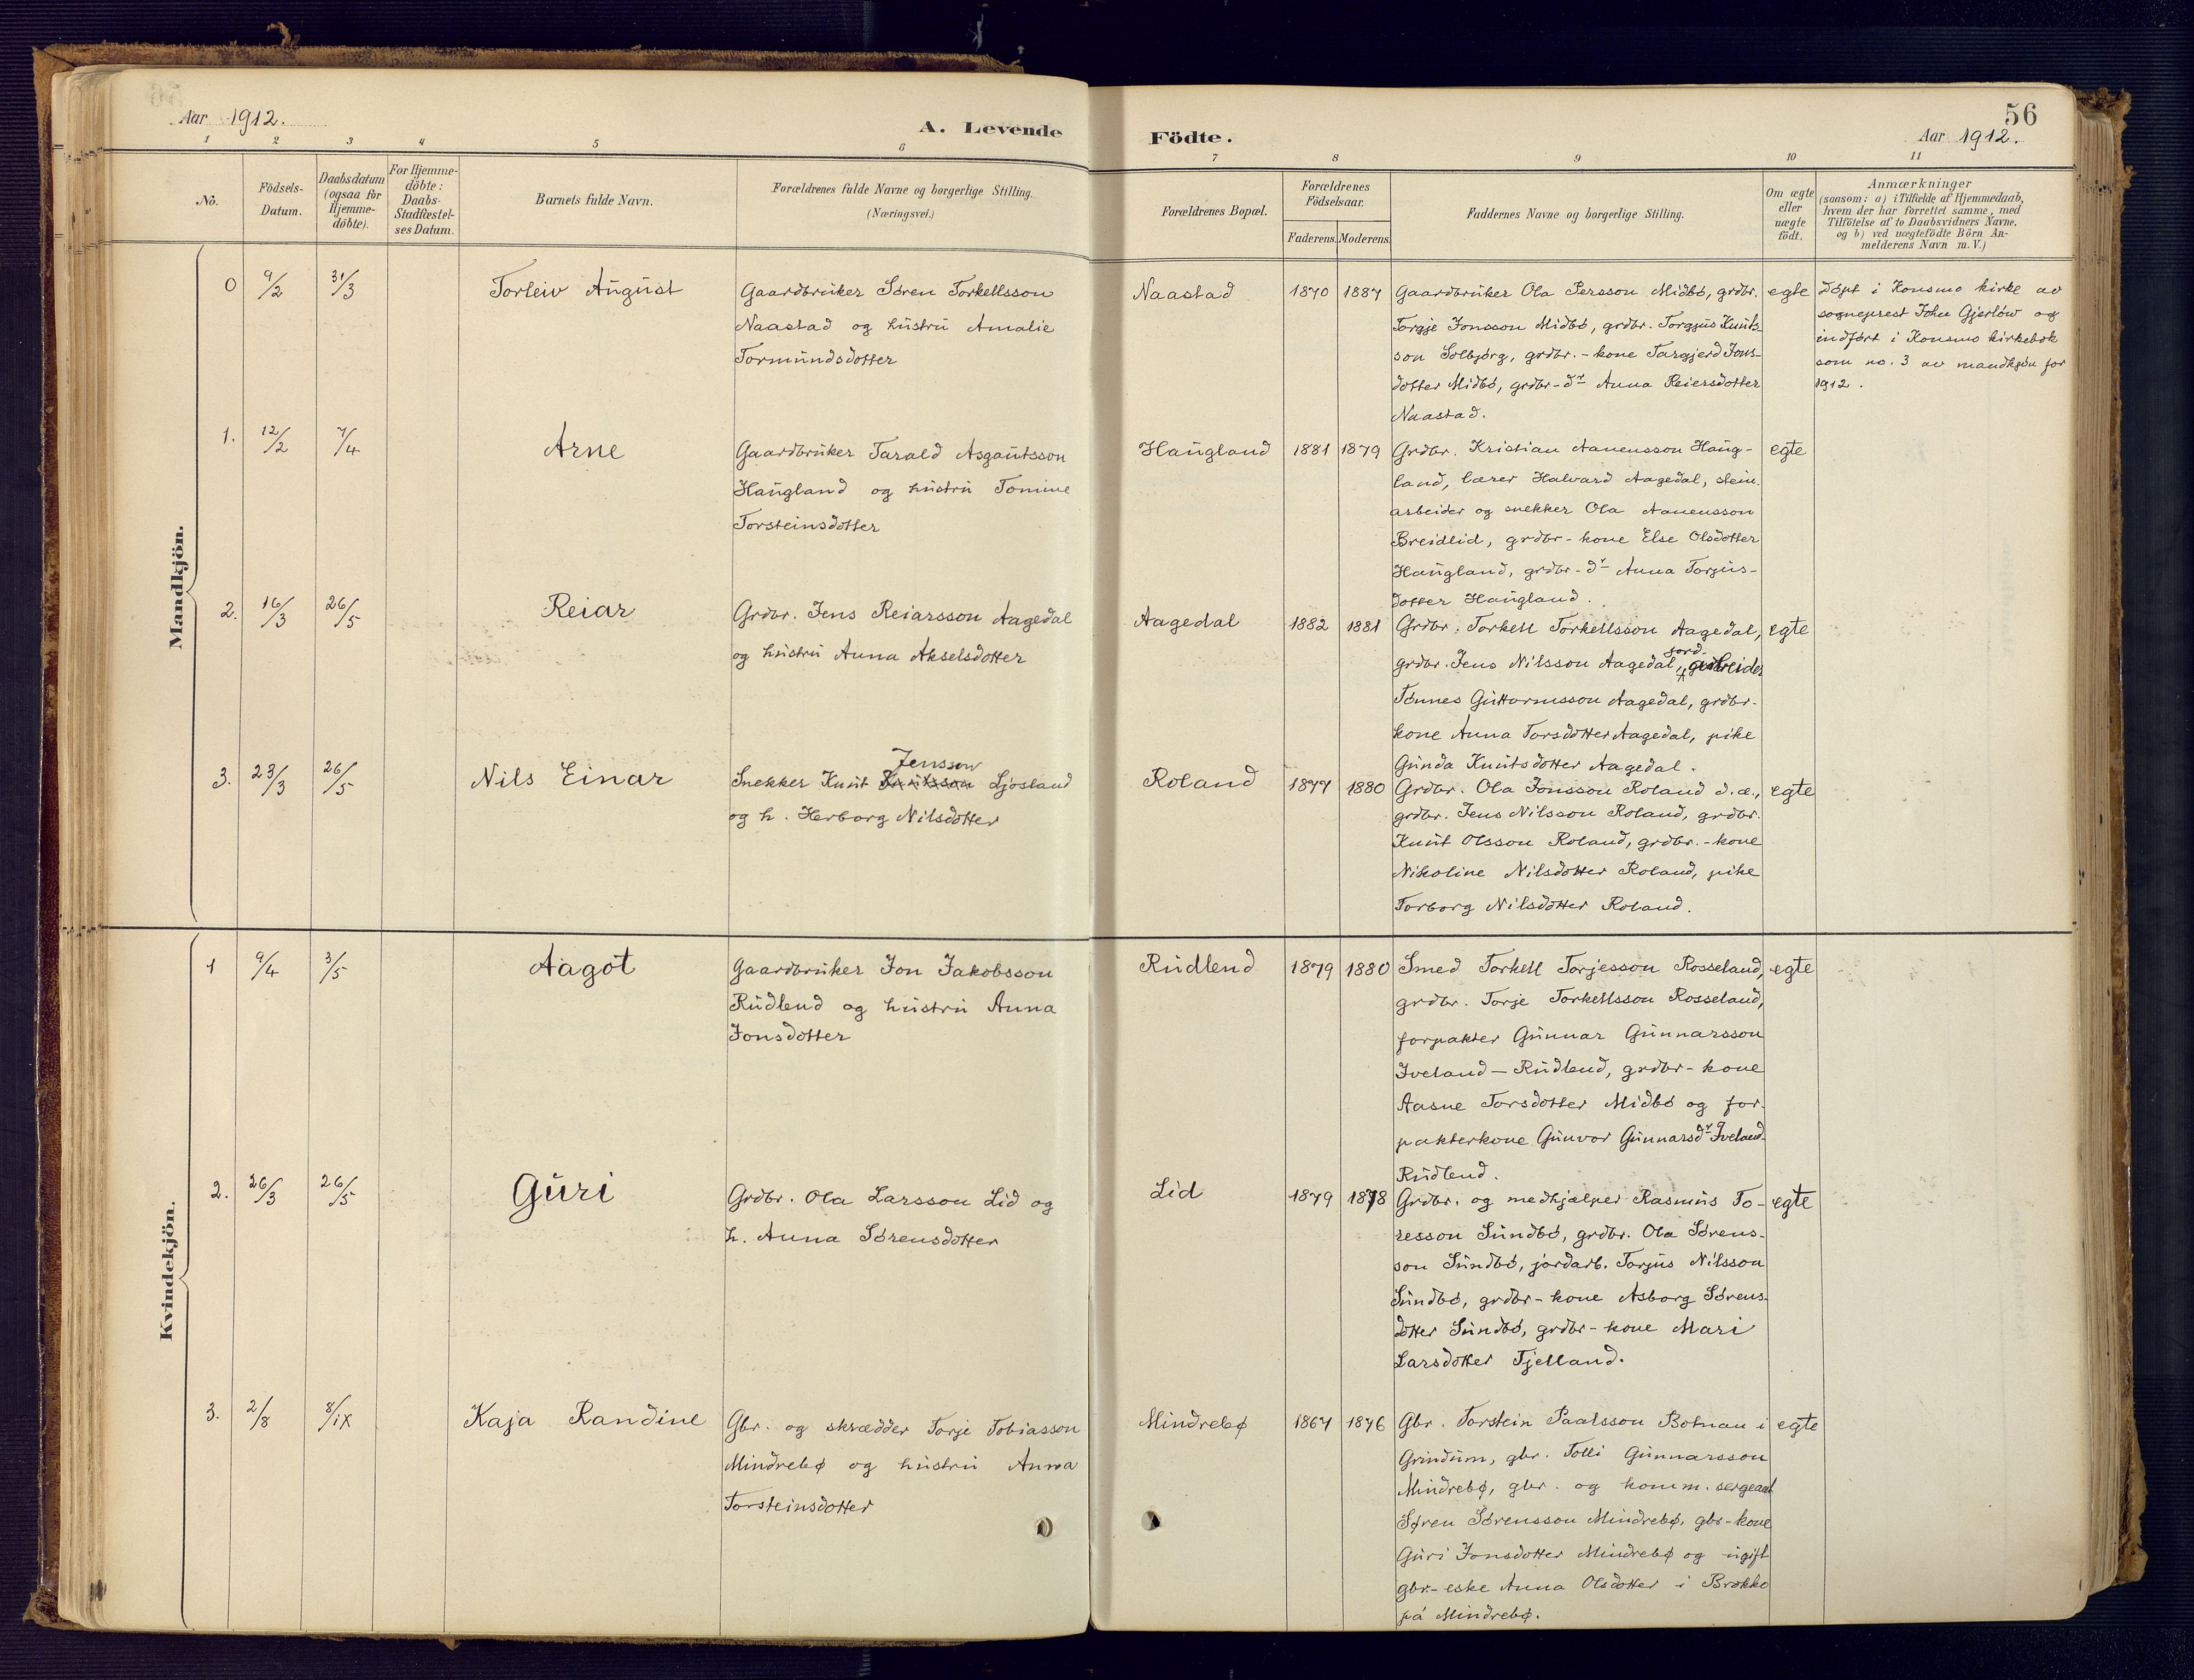 56
Aar 1912.
A. Levende
Födte.
Aar 1912.
1 2 3 4 5 6 7 8 9 10 11
No.
Födsels-
Datum.
Daabsdatum
(ogsaa for
Hjemme-
döbte).
For Hjemme-
döbte:
Daabs-
Stadfæstel-
ses Datum.
Barnets fulde Navn.
Forældrenes fulde Navne og borgerlige Stilling.
(Næringsvei.)
Forældrenes Bopæl.
Forældrenes
Födselsaar.
Faderens. Moderens.
Faddernes Navne og borgerlige Stilling.
Om ægte
eller
uægte
födt.
Anmærkninger
(saasom: a) i Tilfælde af Hjemmedaab,
hvem der har forrettet samme, med
Tilföielse af to Daabsvidners Navne,
og b) ved uægtefödte Börn An-
melderens Navn m. V.)
Mandkjön.
0 9/2 31/3 Torleiv August
Gaardbruker Søren Torkellsson
Naastad og hustru Amalie
Tormundsdotter
Naastad 1870 1887
Gaardbruker Ola Persson Midbó, grdbr.
Torgje Jonsson Midbó, grdbr. Torgjus Knuts-
son Solbjørg, grdbr.-kone Targjerd Jons-
dotter Midbó, grdbr-dr Anna Reiersdotter
Naastad.
egte
Døpt i Konsmo kirke av
sogneprest John Gjerløw og
indført i Konsmo kirkebok
som no. 3 av mandkjøn for
1912.
1. 12/2 7/4 Arne
Gaardbruker Tarald Asgautsson
Haugland og hustru Tomine
Torsteinsdotter
Haugland 1881 1879
Grdbr. Kristian Aanensson Haug-
land, lærer Halvard Aagedal, stein-
arbeider og snekker Ola Aanensson
Breidlid, grdbr-kone Else Olsdotter
Haugland, grdbr-dr Anna Torjus-
dotter Haugland.
egte
2. 16/3 26/5 Reiar
Grdbr. Jens Reiarsson Aagedal
og hustru Anna Akselsdotter
Aagedal 1882 1881
Grdbr. Torkell Torkellsson Aagedal,
grdbr. Jens Nilsson Aagedal, jord-arbeider
Tønnes Guttormsson Aagedal, grdbr.
kone Anna Torsdotter Aagedal, pike
Gunda Knutsdotter Aagedal.
egte
3. 23/3 26/5 Nils Einar
Jensson
Snekker Knut Knutsson Ljosland
og h. Herborg Nilsdotter
Roland 1877 1880
Grdbr. Ola Jonsson Roland d.æ.,
grdbr. Jens Nilsson Roland, grdbr.
Knut Olsson Roland, grdbr.-kone
Nikoline Nilsdotter Roland, pike
Torborg Nilsdotter Roland.
egte
Kvindekjön.
1 9/4 3/5 Aagot
Gaardbruker Jon Jakobsson
Rudlend og hustru Anna
Jonsdotter
Rudlend 1879 1880
Smed Torkell Torjesson Rosseland,
grdbr. Torje Torkellsson Rosseland,
forpakter Gunnar Gunnarsson
Iveland-Rudlend, grdbr-kone
Aasne Torsdotter Midbó og for-
pakterkone Gunvor Gunnarsdr Iveland-
Rudlend.
egte
2. 26/3 26/5 Guri
Grdbr. Ola Larsson Lid og
h. Anna Sørensdotter
Lid 1879 1878
Grdbr. og medhjælper Rasmus To-
resson Sundbó, grdbr. Ola Sørens-
son Sundbó, jordarb. Torjus Nilsson
Sundbó, grdbr-kone Asborg Sørens-
dotter Sundbó, grdbr-kone Mari
Larsdotter Tjelland.
egte
3. 2/8 8/IX Kaja Randine
Gbr. og skrædder Torje Tobiasson
Mindrebø og hustru Anna
Torsteinsdotter
Mindrebø 1867 1876
Gbr. Torstein Paalsson Botnan i
Grindum, gbr. Tolli Gunnarsson
Mindrebø, gbr. og komm. sergeant
Søren Sørensson Mindrebø, gbr-kone
Guri Jonsdotter Mindrebø og ugift
gbr-eske Anna Olsdotter i Brokko
på Mindrebø.
egte